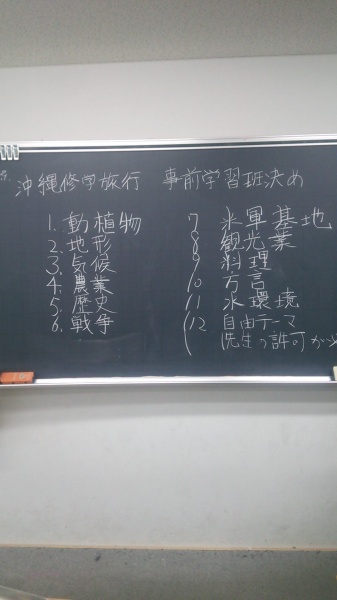 沖縄修学旅行 事前学習班決め
1. 動植物
2. 地形
3. 気候
4. 農業
5. 歴史
6. 戦争
7 米軍基地
8 観光業
9 料理
10 方言
11 水環境
(12 自由テーマ
(先生の許可が必